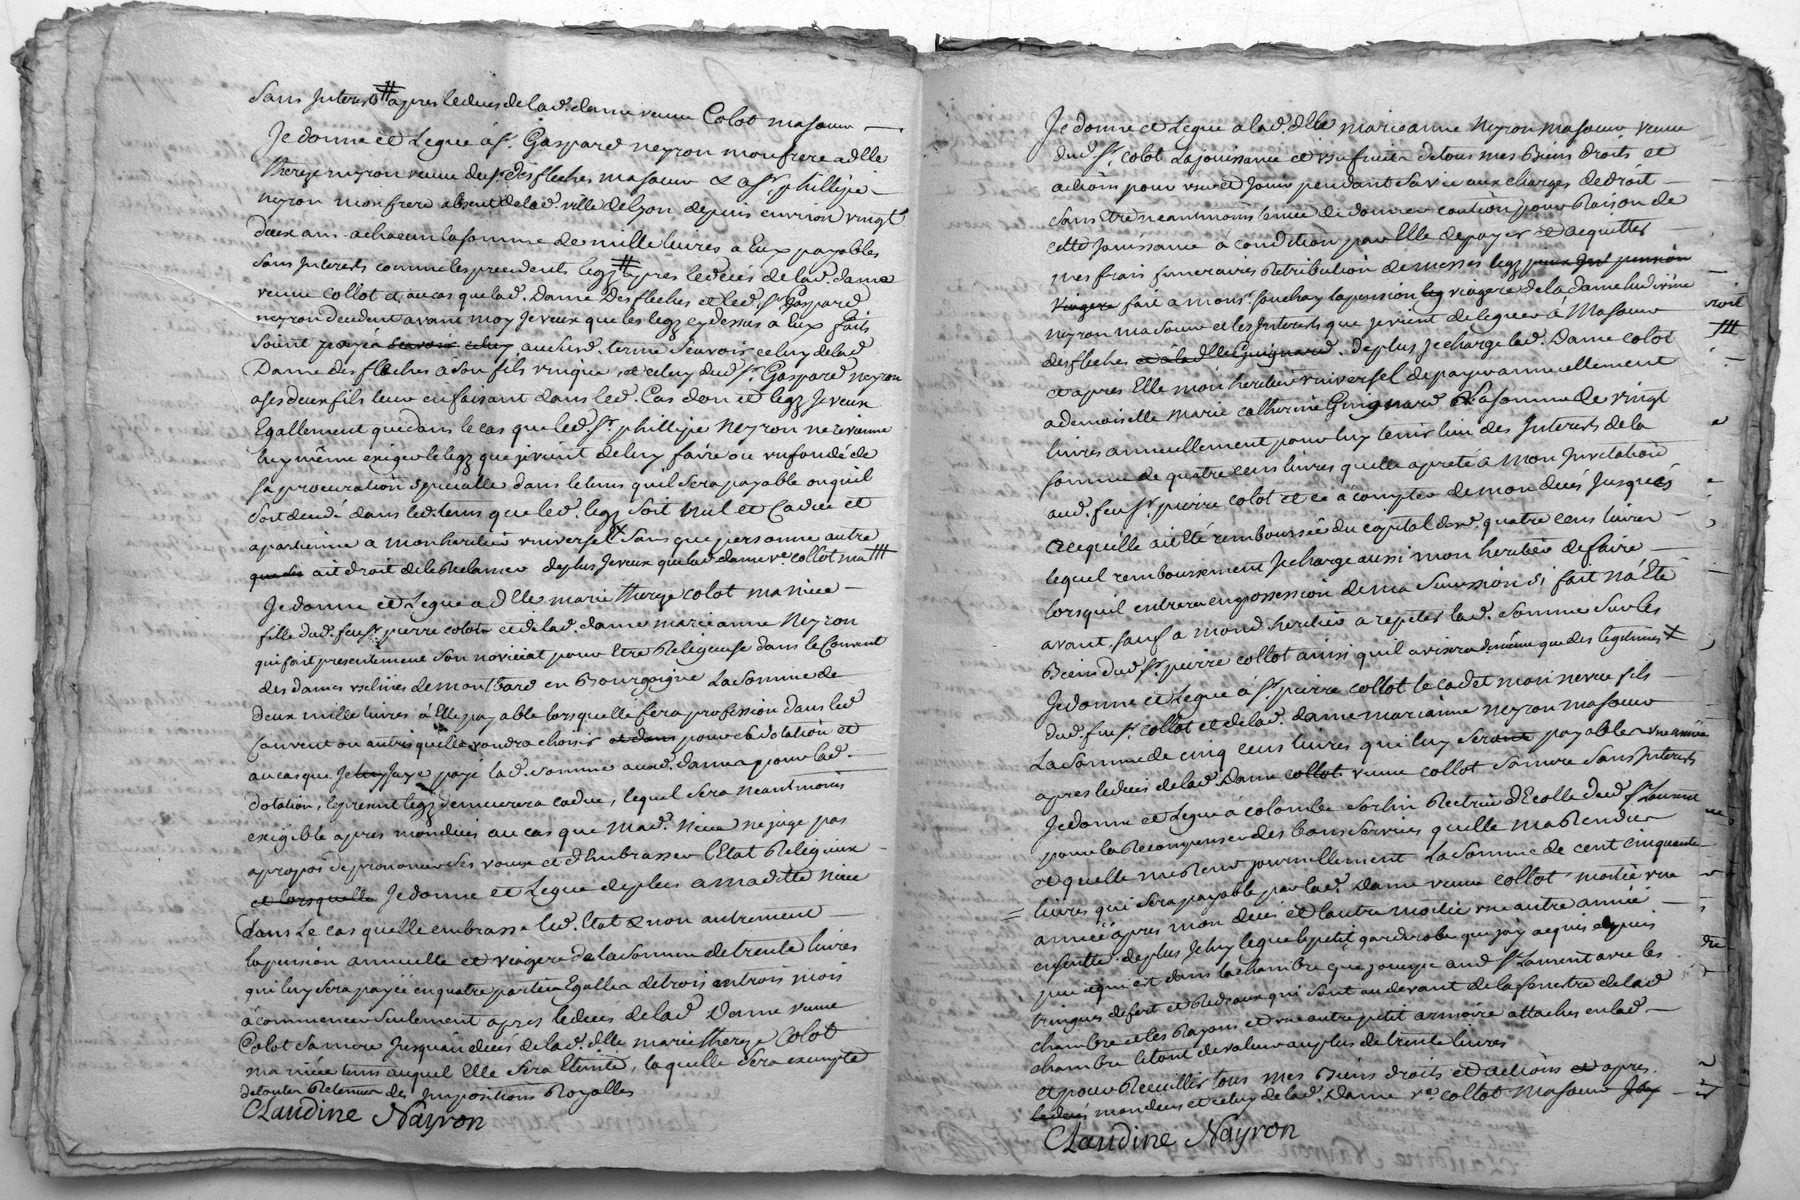 Sans Interest # apres le deces de lad. dame veuve Colot ma soeur —
Je donne et Legue à Sr. Gaspard neyron mon frere a dlle
thereze neyron veuve du Sr. des fleches ma soeur & a Sr. phillipe —
neyron mon frere absent de lad. ville de Lyon depuis environ vingt
deux ans a chacun la somme de mille livres a Eux payables
Sans Interests comme les precedents legz # apres le deces de lad. dame
veuve Collot et au cas que lad. Dame des fleches et led. Sr. Gaspard
neyron decedent avant moy Je veux que les legz cy dessus a Eux faits
soient payés scavoir celuy au susd. terme Scavoir celuy de lad.
Dame des fleches à son fils unique et celuy dud. Sr. Gaspard neyron
a ses deux fils leur en faisant dans led. Cas don et legz Je veux
Egallement que dans le cas que led. Sr. phillipe Neyron ne revienne
luy même exiger le legz que je vient de luy faire ou un fondé de
sa procuration speciale dans le tems quil sera payable ou quil
soit decedé dans led. tems que led. legz soit Nul et Caduc et
apartienne a mon heritier universel Sans que personne autre
que les ait droit de le Reclamer de plus Je veux que lad. dame ve. collot ma #
Je donne et Legue a Dlle marie thereze colot ma niece —
fille dud. feu Sr. pierre colot et de lad. dame marie anne Neyron
qui fait presentement son noviciat pour Etre Religieuse dans le Couvent
des dames urselines de montbard en Bourgogne La Somme de
deux mille livres à Elle payable lorsquelle fera profession dans led.
Couvent ou autre quelle voudra choisir et dans pour sa dotation et
au cas que Je luy Jaye payé lad. somme auxd. dames pour lad.
dotation, le present legz demeurera caduc, lequel sera neantmoins
exigible apres mon deces au cas que mad. Niece ne juge pas
apropos de prononcer ses voeux et d'Embrasser l'Etat Religieux —
et lorsquelle Je donne et Legue de plus a maditte niece
Dans le cas quelle embrasse led. Etat & non autrement —
la pension annuelle et viagere de la Somme de trente livres
qui luy sera payée en quatre parties Egalles de trois en trois mois
à commencer seulement apres le deces de lad. Dame veuve
Colot sa mere Jusquau deces de lad. dlle marie thereze Colot
ma niece tems auquel Elle sera Eteinte, laquelle sera exempte
de toutes Retenues des Impositions Royalles
CLaudine Nayron
Je donne et Legue a lad. dlle marie anne Neyron ma soeur veuve
dud. Sr. colot La jouissance et usufruit de tous mes Biens droits et
actions pour user et Jouir pendant sa vie aux charges de droit —
sans Etre neantmoins tenue de donner caution pour Raison de
cette Jouissance à condition par Elle de payer et acquitter —
mes frais funeraires Retribution de messes legz pieux Jnt pension
viagere fait a mons. Souchay la pension leg viagere de la dame ludivine
neyron ma soeur et les Interests que je vient de leguer à Ma soeur
des fleches et à la dlle Guignard. de plus Je charge lad. Dame Colot
et apres Elle mon heritier universel de payer annuellement
a demoiselle Marie Catherine Guignard La somme de vingt
livres annuellement pour luy tenir lieu des Interests de la
somme de quatre cens livres quelle a preté à Mon Invitation
aud. feu Sr. pierre colot et ce à compter de mon deces Jusques
a cequelle ait Eté remboursée du capital desd. quatre cens livres
lequel remboursement Je charge aussi mon heritier de faire —
lorsquil entrera en possession de ma Succession si fait na Eté
avant, sauf a mond. heritier a repeter lad. Somme sur les
Biens dud. Sr. pierre collot ainsi quil avisera de même que des legitimes X
Je donne et Legue à Sr. pierre collot le cadet mon neveu fils —
dud. feu Sr. Collot et de lad. dame marianne Neyron ma soeur
La Somme de cinq cens livres qui luy sera payable une année
apres le deces de lad. Dame collot veuve collot sa mere Sans Interests
Je donne et Legue à colombe Sorlin Rectrice d'Ecolle dud. St. Laurent
pour la Recompenser des bons Services quelle ma Rendu
et quelle me Rend journellement La Somme de cent cinquante
livres qui sera payable par lad. Dame veuve collot moitié une
année apres mon deces et l'autre moitié une autre année —
ensuitte. de plus Je luy legue le petit garderobe que j'ay acquis depuis
peu et qui est dans la chambre que joccupe aud. St. Laurent avec les
tringues de fert et Rideaux qui sont au devant de la fenestre de lad.
chambre et les Rayons et une autre petit armoire attachés en lad. —
chambre le tout de valeur au plus de trente livres
Et pour Recueillir tous mes Biens droits et actions et apres
le deces mon deces et celuy de lad. Dame ve. collot Ma soeur Jay
CLaudine Nayron